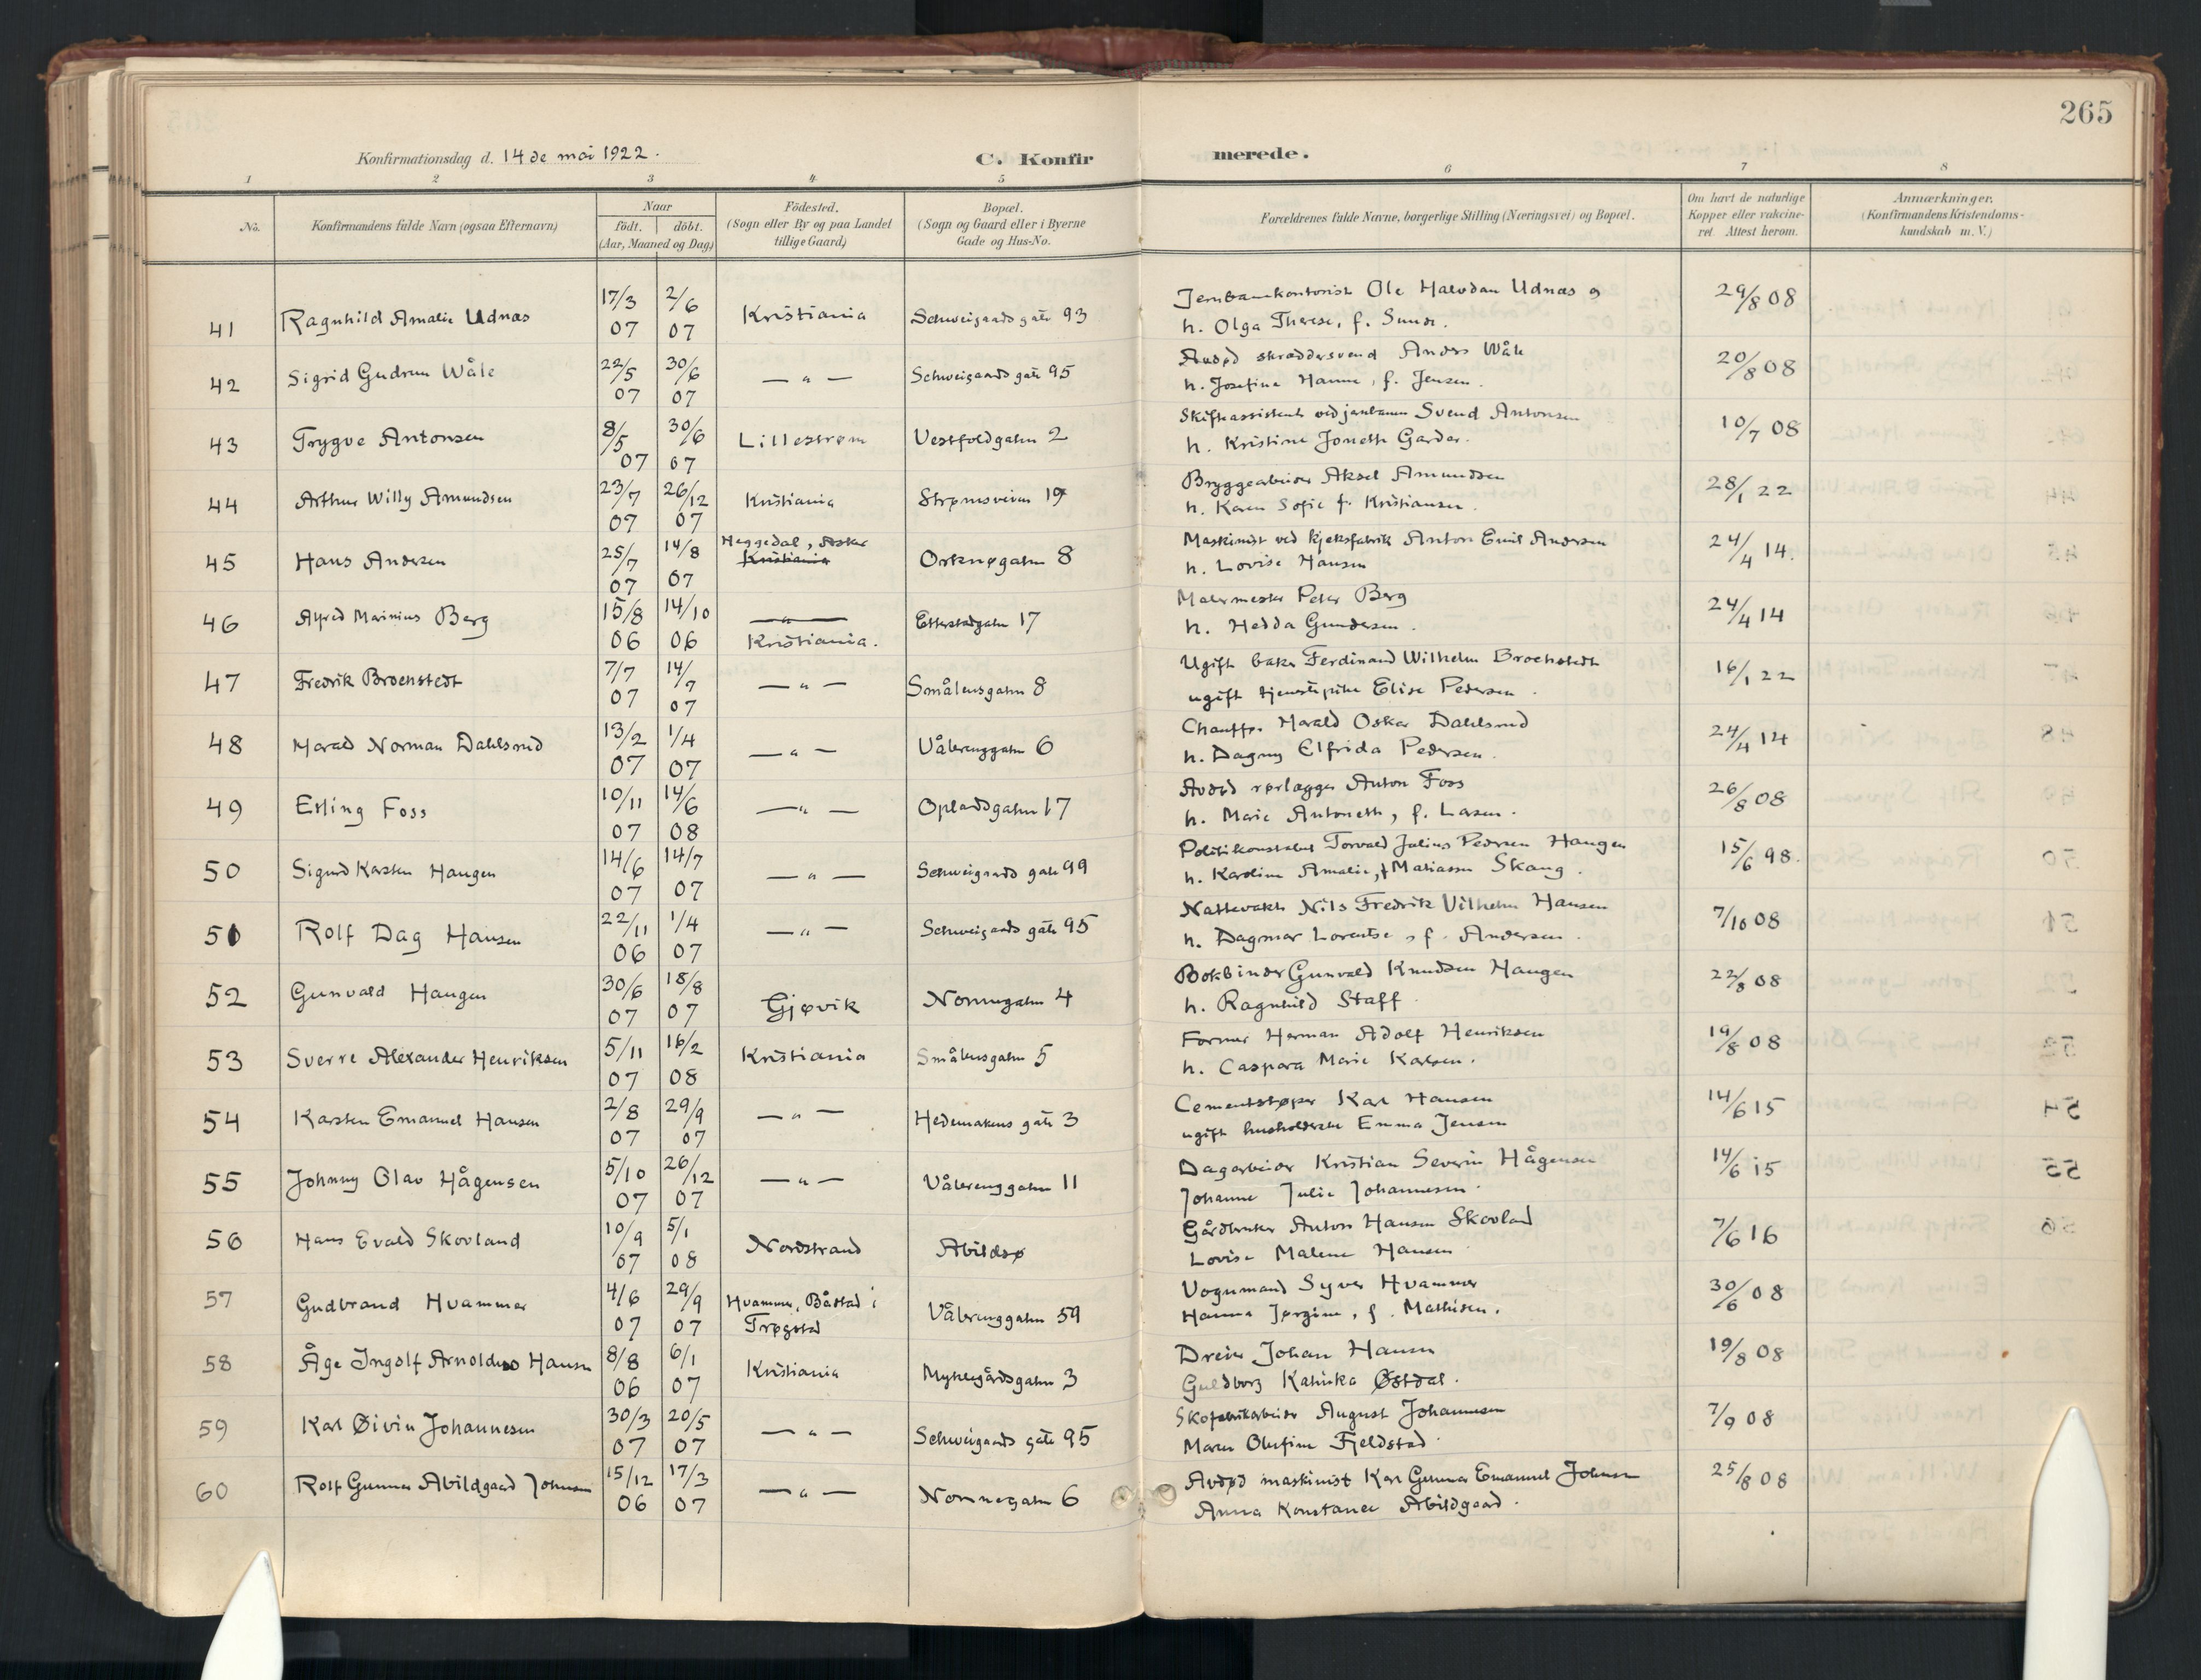 265
Konfirmationsdag d. 14de mai 1922.
C. Konfirmerede.
1 2 3 4 5 6 7 8
No.
Konfirmandens fulde Navn (ogsaa Efternavn)
Naar
födt. döbt.
(Aar, Maaned og Dag)
Födested.
(Sogn eller By og paa Landet
tillige Gaard)
Bopæl.
(Sogn og Gaard eller i Byerne
Gade og Hus-No.
Forældrenes fulde Navne, borgerlige Stilling (Næringsvei) og Bopæl.
Om havt de naturlige
Kopper eller vakcine-
ret Attest herom.
Anmærkninger.
(Konfirmandens Kristendoms-
kundskab m. V.)
41 Ragnhild Amalie Udnæs 17/3 07 2/6 07 Kristiania Schweigaards gate 93 Jernbanekontorist Ole Halvdan Udnæs og 29/8 08
h. Olga Therese, f. Sunde.
42 Sigrid Gudrun Wåle 22/5 07 30/6 07 — " — Schweigaards gate 95 Avdød skræddersvend Anders Wåle 20/8 08
h. Josefine Hanne, f. Jensen.
43 Trygve Antonsen 8/5 07 30/6 07 Lillestrøm Vestfoldgaten 2 Skifteassistent ved jernbanen Svend Antonsen 10/7 08
h. Kristine Joneth Garder.
44 Arthur Willy Amundsen 23/7 07 26/12 07 Kristiania Strømsveien 19 Bryggearbeider Aksel Amundsen 28/1 22
h. Karen Sofie f. Kristiansen.
45 Hans Andersen 25/7 07 14/8 07 Heggedal, Asker Kristiania Orknøgaten 8 Maskinist ved kjeksfabrik Anton Emil Andersen 24/4 14.
h. Lovise Hansen
46 Alfred Marinius Berg 15/8 06 14/10 06 — " — Kristiania. Etterstadgaten 17 Malermester Peter Berg 24/4 14
h. Hedda Gundersen.
47 Fredrik Broenstedt 7/7 07 14/7 07 — " — Smålensgaten 8 Ugift baker Ferdinand Wilhelm Broehstedt 16/1 22
ugift tjenestepike Elise Pedersen.
48 Harald Norman Dahlsrud 13/2 07 1/4 07 — " — Vålerenggaten 6 Chauffør Harald Oskar Dahlsrud 24/4 14
h. Dagny Elfrida Pedersen.
49 Erling Foss 10/11 07 14/6 08 — " — Oplandsgaten 17 Avdød rørlægger Anton Foss 26/8 08
h. Marie Antoneth, f. Larsen.
50 Sigurd Karsten Haugen 14/6 07 14/7 07 — " — Schweigaards gate 99 Politikonstabel Torvald Julius Pedersen Haugen 15/6 98.
h. Karoline Amalie, f Matiassen Skaug.
51 Rolf Dag Hansen 22/11 06 1/4 07 — " — Schweigaards gate 95 Nattevakt Nils Fredrik Vilhelm Hansen 7/10 08
h. Dagmar Lorentse, f. Andersen.
52 Gunvald Haugen 30/6 07 18/8 07 Gjøvik Nonnegaten 4 Bokbinder Gunvald Knudsen Haugen 22/8 08
h. Ragnhild Staff
53 Sverre Alexander Henriksen 5/11 07 16/2 08 Kristiania Smålensgaten 5 Former Herman Adolf Henriksen 19/8 08
h. Caspara Marie Karlsen.
54 Karsten Emanuel Hansen 2/8 07 29/9 07 — " — Hedemarkens gate 3 Cementstøper Karl Hansen 14/6 15
ugift husholderske Emma Jensen
55 Johnny Olav Hågensen 5/10 07 26/12 07 — " — Vålerenggaten 11 Dagarbeider Kristian Severin Hågensen 14/6 15
Johanne Julie Johannesen.
56 Hans Evald Skovland 10/9 07 5/1 08 Nordstrand Abildsø Gårdbruker Anton Hansen Skovland 7/6 16
Lovise Malene Hansen
57 Gudbrand Hvammer 4/6 07 29/9 07 Hvammer, Båstad i Trøgstad Vålerenggaten 59 Vognmand Syver Hvammer 30/6 08
Hanna Jørgine, f. Mathisen.
58 Åge Ingolf Arnoldus Hansen 8/8 06 6/1 07 Kristiania Myklegårdsgaten 3 Dreier Johan Hansen 19/8 08
Guldborg Katinka Østdal.
59 Karl Øivin Johannesen 30/3 07 20/5 07 — " — Schweigaards gate 95 Skofabrikarbeider August Johannesen 7/9 08
Maren Olufine Fjeldstad.
60 Rolf Gunnar Abildgaard Johnsen 15/12 06 17/3 07 — " — Nonnegaten 6 Avdød maskinist Karl Gunnar Emanuel Johnsen 25/8 08
Anna Konstance Abildgaard.